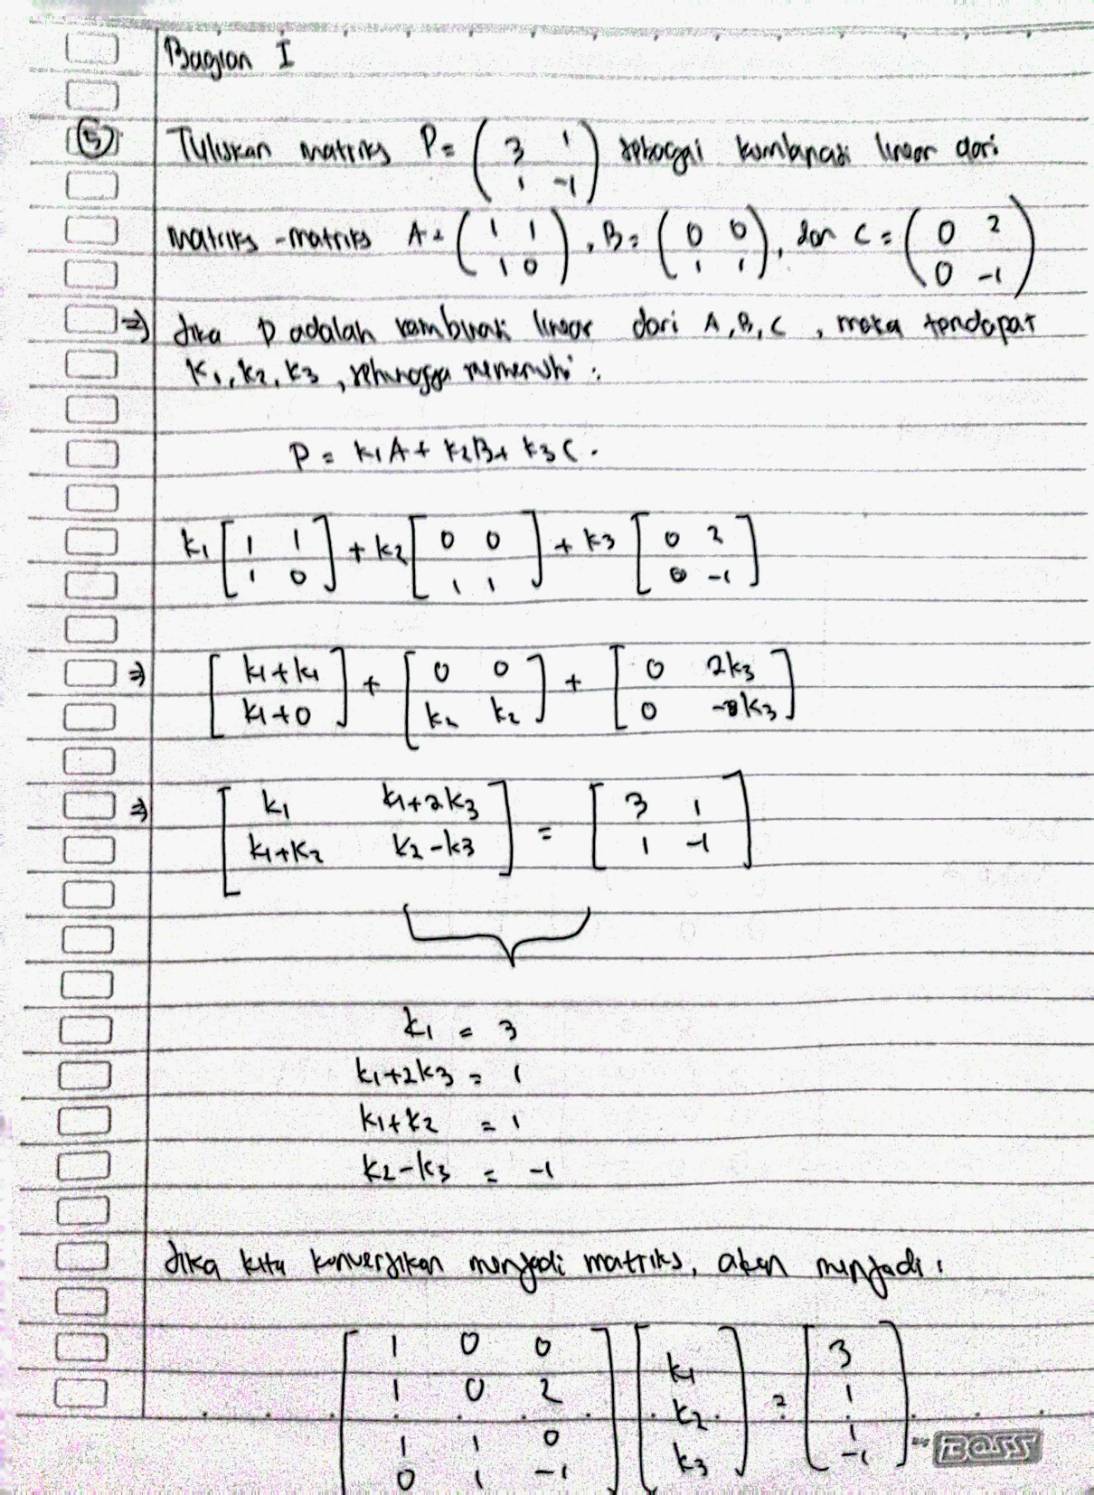 Bagian I
(5) Tuliskan matriks P = ( 3 1 ; 1 -1 ) sebagai kombinasi linear dari
matriks-matriks A = ( 1 1 ; 1 0 ), B = ( 0 0 ; 1 1 ), dan C = ( 0 2 ; 0 -1 )
⇒ Jika P adalah kombinasi linear dari A, B, C, maka terdapat
K1, K2, K3, sehingga memenuhi :
P = K1A + K2B + K3C.
k1 [ 1 1 ; 1 0 ] + k2 [ 0 0 ; 1 1 ] + k3 [ 0 2 ; 0 -1 ]
⇒ [ k1+k1 ; k1+0 ] + [ 0 0 ; k2 k2 ] + [ 0 2k3 ; 0 -k3 ]
⇒ [ k1 k1+2k3 ; k1+k2 k2-k3 ] = [ 3 1 ; 1 -1 ]
k1 = 3
k1+2k3 = 1
k1+k2 = 1
k2-k3 = -1
Jika kita konversikan menjadi matriks, akan menjadi :
[ 1 0 0 ; 1 0 2 ; 1 1 0 ; 0 1 -1 ] [ k1 ; k2 ; k3 ] = [ 3 ; 1 ; 1 ; -1 ]
BOSS